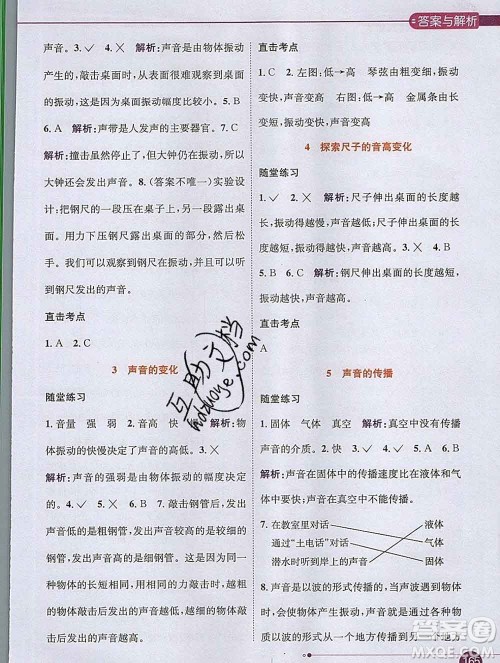 答案与解析
声音。3. ✓ 4. ✗ 解析：声音是由物体振动
产生的，敲击桌面时，我们很难观察到桌面
的振动，这是因为桌面振动幅度比较小。5. B
6. A 解析：声带是人发声的主要器官。7. C
解析：撞击虽然停止了，但大钟仍在振动，所以
大钟还会发出声音。8.（答案不唯一）实验设
计：把钢尺的一部分压在桌子上，部分露出桌
面。用力向下压钢尺露出桌面的部分，然后松
手。我们可以观察到钢尺在振动，并可以听
到钢尺发出的声音。
直击考点
1. A 2. C
3 声音的变化
随堂练习
1. 音量 强 弱 2. 音高 快
体振动的快慢决定了声音的高低。4. ✗
解析：声音的强弱是由物体振动的幅度决定
的。5. ✓ 6. B 解析：敲击相同长度的钢管
时，发出声音低的是粗钢管，因为粗的钢管
相对于较细的钢管振动的频率更慢，所以声
音更低；声音高的是细钢管。7. A 解析：物
体的长短相同时，越粗的物体振动越慢，越粗
的物体振动发出的声音越低。8. B
直击考点
1. C 2. 左图：低→高 琴弦由粗变细，振动
变快，声音变高 右图：低→高 金属条由长
变短，振动变快，声音变高
4 探索尺子的音高变化
随堂练习
1. ✓ 2. ✗ 解析：尺子伸出桌面的长度越
长，振动得越慢，声音越低；尺子伸出桌面的长
度越短，振动得越快，声音越高。3. ✓ 4. ✓
5. A 6. B 7. B 解析：钢尺伸出桌面的长度
越短，振动越快，声音越高。
直击考点
A
5 声音的传播
随堂练习
1. 固体 气体 真空 解析：真空中没有传播
声音的介质。2. 快 3. ✓ 4. ✗ 5. B 6. B
解析：声音在固体中的传播速度比在液体和
气体中快，声音在真空中不能传播。
7. 在教室里对话 液体
通过“土电话”对话 气体
潜水时听到岸上的声音 固体
8. 声音是以波的形式传播的，当声波遇到物体
时，会使物体产生振动，声音以波的形式传
播，振动以波的形式从一个地方传播到另一个地方
互助文档
hdzuoye.com
答案圈
MXQE.COM
165